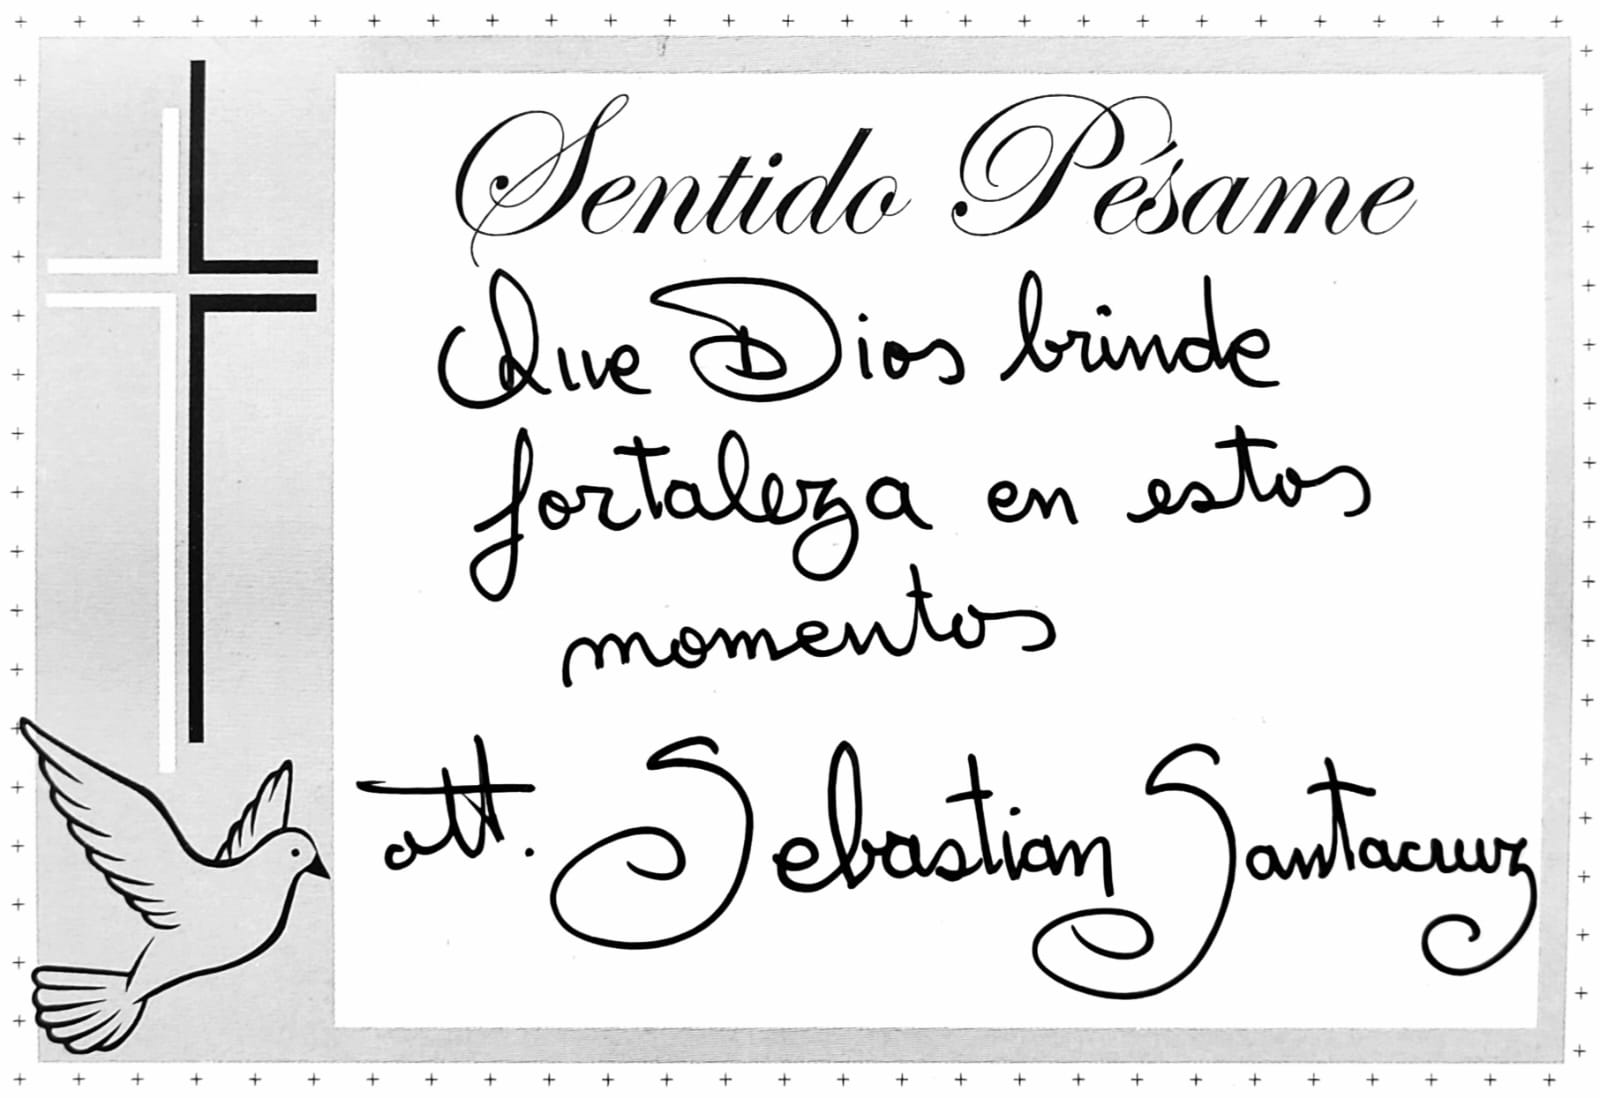 Sentido Pésame
Que Dios brinde
fortaleza en estos
momentos
att. Sebastian Santacruz